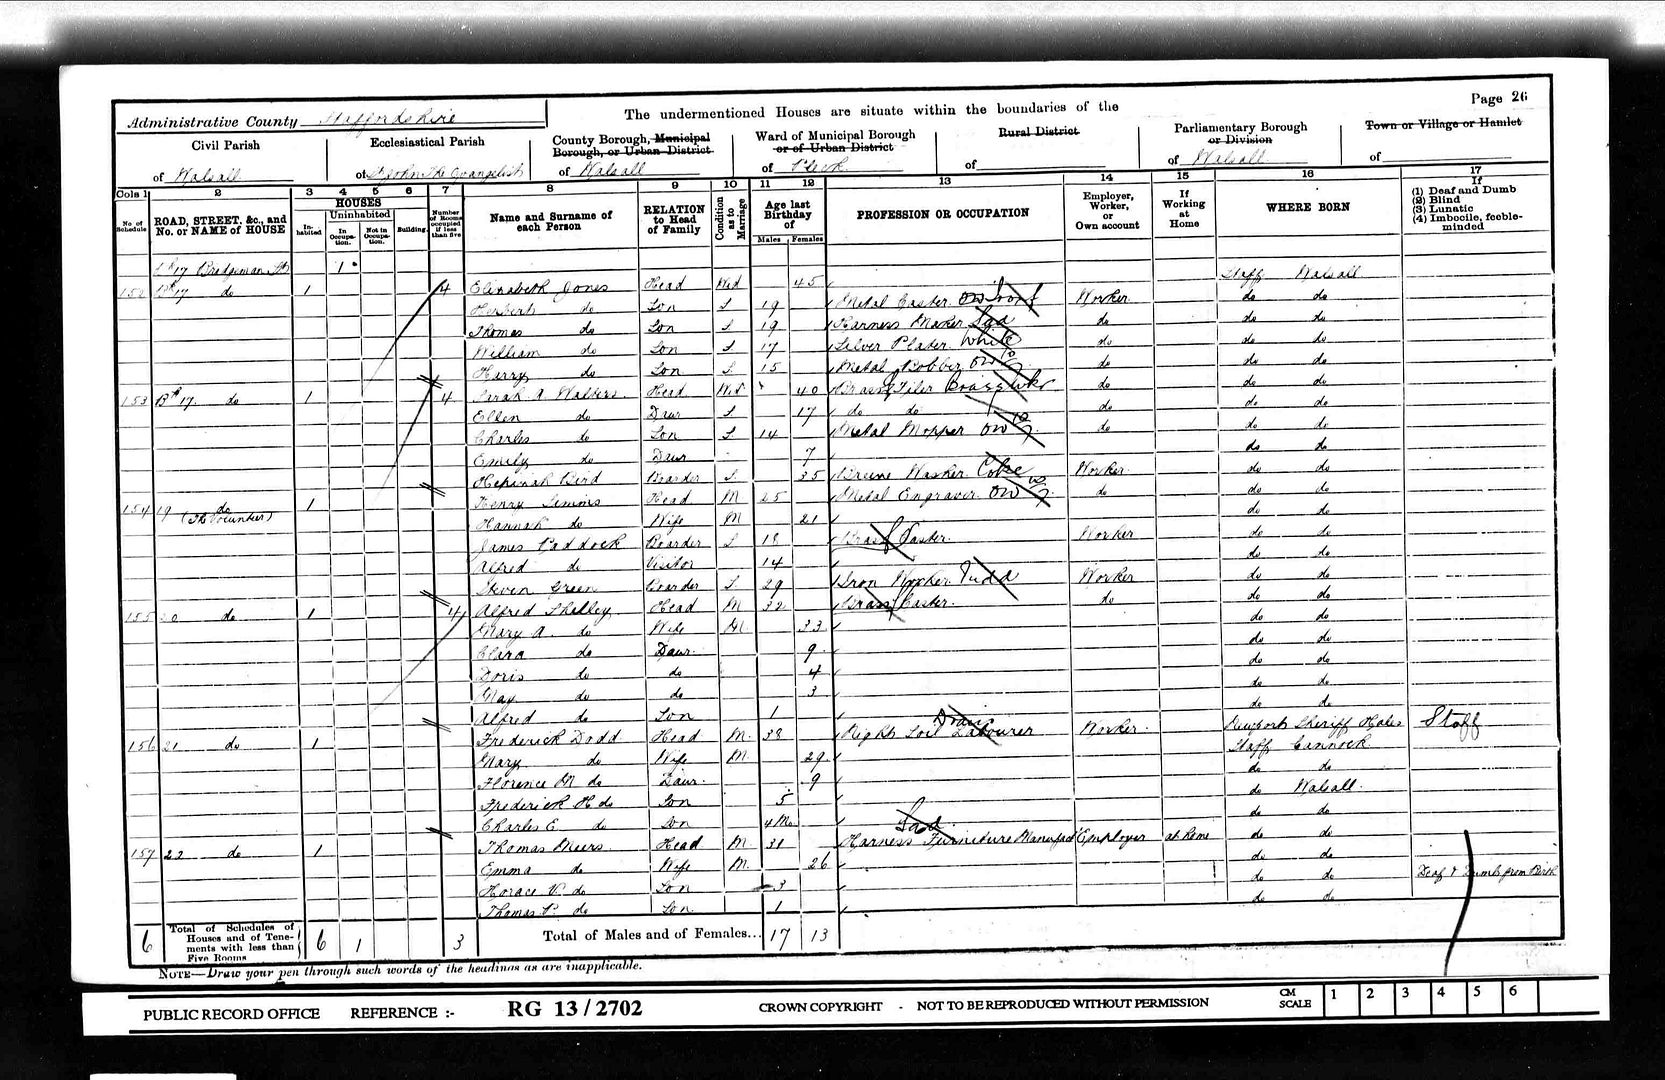 Page 26
Administrative County Staffordshire
The undermentioned Houses are situate within the boundaries of the
Civil Parish
of Walsall
Ecclesiastical Parish
of St John The Evangelist
County Borough, Municipal
Borough, or Urban District
of Walsall
Ward of Municipal Borough
or of Urban District
of Pleck
Rural District
of
Parliamentary Borough
or Division
of Walsall
Town or Village or Hamlet
of
Cols 1 2 3 4 5 6 7 8 9 10 11 12 13 14 15 16 17
No. of Schedule
ROAD, STREET, &c., and No. or NAME of HOUSE
HOUSES
Inhabited
Uninhabited
In Occupation.
Not in Occupation.
Building.
Number of Rooms occupied if less than five
Name and Surname of each Person
RELATION to Head of Family
Condition as to Marriage
Age last Birthday of
Males Females
PROFESSION OR OCCUPATION
Employer, Worker, or Own account
If Working at Home
WHERE BORN
If
(1) Deaf and Dumb
(2) Blind
(3) Lunatic
(4) Imbecile, feeble-minded
17 Bridgeman St 1
152 17 do 1 4 Elizabeth Jones Head Wid 45 Staff Walsall
Herbert do Son S 19 Metal Caster Worker do do
Thomas do Son S 19 Harness Maker do do do
William do Son S 17 Silver Plater White do do do
Harry do Son S 15 Metal Bobber do do do
153 17 do 1 4 Sarah A Walters Head Wid 40 Brass Filer do do do
Ellen do Daur S 17 do do do do do
Charles do Son S 14 Metal Mopper do do do
Emily do Daur 7 do do
Hepzinah Bird Boarder S 35 Worker do do
154 19 do (The Volunteer) 1 Henry Simms Head M 25 Metal Engraver do do do
Hannah do Wife M 21 do do
James Paddock Boarder S 18 Brass Caster Worker do do
Alfred do Visitor 14 do do
Steven Green Boarder S 29 Iron Worker Worker do do
155 20 do 1 4 Alfred Shelley Head M 32 Brass Caster do do do
Mary A. do Wife M 33 do do
Clara do Daur 9 do do
Doris do do 4 do do
May do do 3 do do
Alfred do Son 1 do do
156 21 do 1 Frederick Dodd Head M 38 Night Soil Labourer Drain Worker Newport Sheriff Hales Staff
Mary do Wife M 29 Staff Cannock
Florence M do Daur. 9 do do
Frederick H do Son 5 do Walsall
Charles E. do Son 4 Mo. do do
157 22 do 1 Thomas Meers Head M 31 Harness Furniture Manufact Employer at Home do do
Emma do Wife M. 26 do do
Horace V. do Son 3 do do Deaf & Dumb from Birth
Thomas P. do Son 1 do do
6 Total of Schedules of Houses and of Tenements with less than Five Rooms 6 1 3 Total of Males and of Females... 17 13
NOTE—Draw your pen through such words of the headings as are inapplicable.
PUBLIC RECORD OFFICE REFERENCE :- RG 13 / 2702 CROWN COPYRIGHT - NOT TO BE REPRODUCED WITHOUT PERMISSION CM SCALE 1 2 3 4 5 6